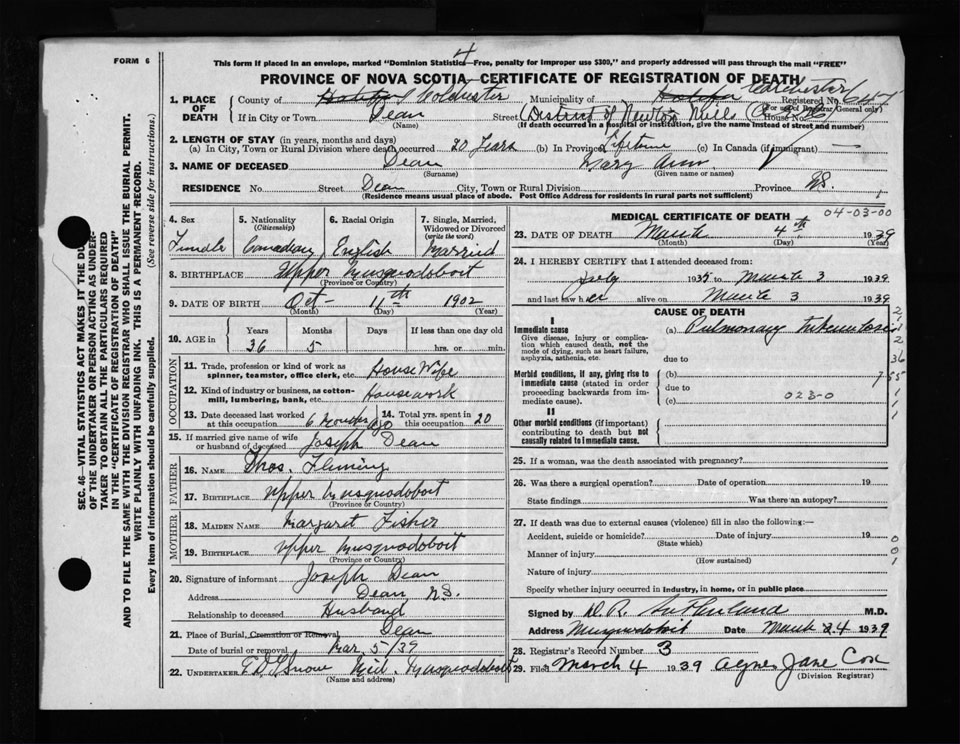 FORM 6
4
This form if placed in an envelope, marked "Dominion Statistics—Free, penalty for improper use $300," and properly addressed will pass through the mail "FREE"
PROVINCE OF NOVA SCOTIA—CERTIFICATE OF REGISTRATION OF DEATH
1. PLACE OF DEATH
County of Halifax Colchester Municipality of Halifax Colchester Registered No. 647
(For use of Registrar General only)
If in City or Town Dean Street (District of Newton Mills House No.
(Name) (If death occurred in a hospital or institution, give the name instead of street and number)
2. LENGTH OF STAY (in years, months and days)
(a) In City, Town or Rural Division where death occurred 20 Years (b) In Province Lifetime (c) In Canada (if immigrant) —
3. NAME OF DECEASED Dean Mary Ann
(Surname) (Given name or names)
RESIDENCE No. Street Dean City, Town or Rural Division Province N.S.
(Residence means usual place of abode. Post Office Address for residents in rural parts not sufficient)
4. Sex
Female
5. Nationality
(Citizenship)
Canadian
6. Racial Origin
English
7. Single, Married, Widowed or Divorced
(write the word)
Married
8. BIRTHPLACE Upper Musquodoboit
(Province or Country)
9. DATE OF BIRTH Oct- 11th 1902
(Month) (Day) (Year)
10. AGE in
Years Months Days If less than one day old
36 5 hrs. or min.
OCCUPATION
11. Trade, profession or kind of work as
spinner, teamster, office clerk, etc. House Wife
12. Kind of industry or business, as cotton-
mill, lumbering, bank, etc. Housework
13. Date deceased last worked at this occupation 6 months ago
14. Total yrs. spent in this occupation 20
15. If married give name of wife
or husband of deceased Joseph Dean
FATHER
16. NAME Thos. Fleming
17. BIRTHPLACE Upper Musquodoboit
(Province or Country)
MOTHER
18. MAIDEN NAME Margaret Fisher
19. BIRTHPLACE Upper Musquodoboit
(Province or Country)
20. Signature of informant Joseph Dean
Address Dean N.S.
Relationship to deceased Husband
21. Place of Burial, Cremation or Removal Dean
Date of burial or removal Mar. 5/39
22. UNDERTAKER Mid. Musquodoboit
(Name and address)
MEDICAL CERTIFICATE OF DEATH
04-03-00
23. DATE OF DEATH March 4th 1939
(Month) (Day) (Year)
24. I HEREBY CERTIFY that I attended deceased from:
July 1935 to March 3 1939
and last saw her alive on March 3 1939
CAUSE OF DEATH
I
Immediate cause
Give disease, injury or complica-
tion which caused death, not the
mode of dying, such as heart failure,
asphyxia, asthenia, etc.
(a) Pulmonary tuberculosis
due to
Morbid conditions, if any, giving rise to
immediate cause (stated in order
proceeding backwards from im-
mediate cause).
(b)
due to
(c) 023-0
II
Other morbid conditions (if important)
contributing to death but not
causally related to immediate cause.
25. If a woman, was the death associated with pregnancy?
26. Was there a surgical operation? Date of operation 19
State findings Was there an autopsy?
27. If death was due to external causes (violence) fill in also the following:—
Accident, suicide or homicide? Date of injury 19
(State which)
Manner of injury
(How sustained)
Nature of injury
Specify whether injury occurred in industry, in home, or in public place
Signed by D. R. Sutherland M.D.
Address Musquodoboit Date March 4 1939
28. Registrar's Record Number 3
29. Filed March 4 1939 Agnes Jane Cox
(Division Registrar)
SEC. 46—VITAL STATISTICS ACT MAKES IT THE DUTY
OF THE UNDERTAKER OR PERSON ACTING AS UNDER-
TAKER TO OBTAIN ALL THE PARTICULARS REQUIRED
IN THE "CERTIFICATE OF REGISTRATION OF DEATH"
AND TO FILE THE SAME WITH THE DIVISION REGISTRAR WHO SHALL ISSUE THE BURIAL PERMIT.
WRITE PLAINLY WITH UNFADING INK. THIS IS A PERMANENT RECORD.
Every item of information should be carefully supplied. (See reverse side for instructions.)